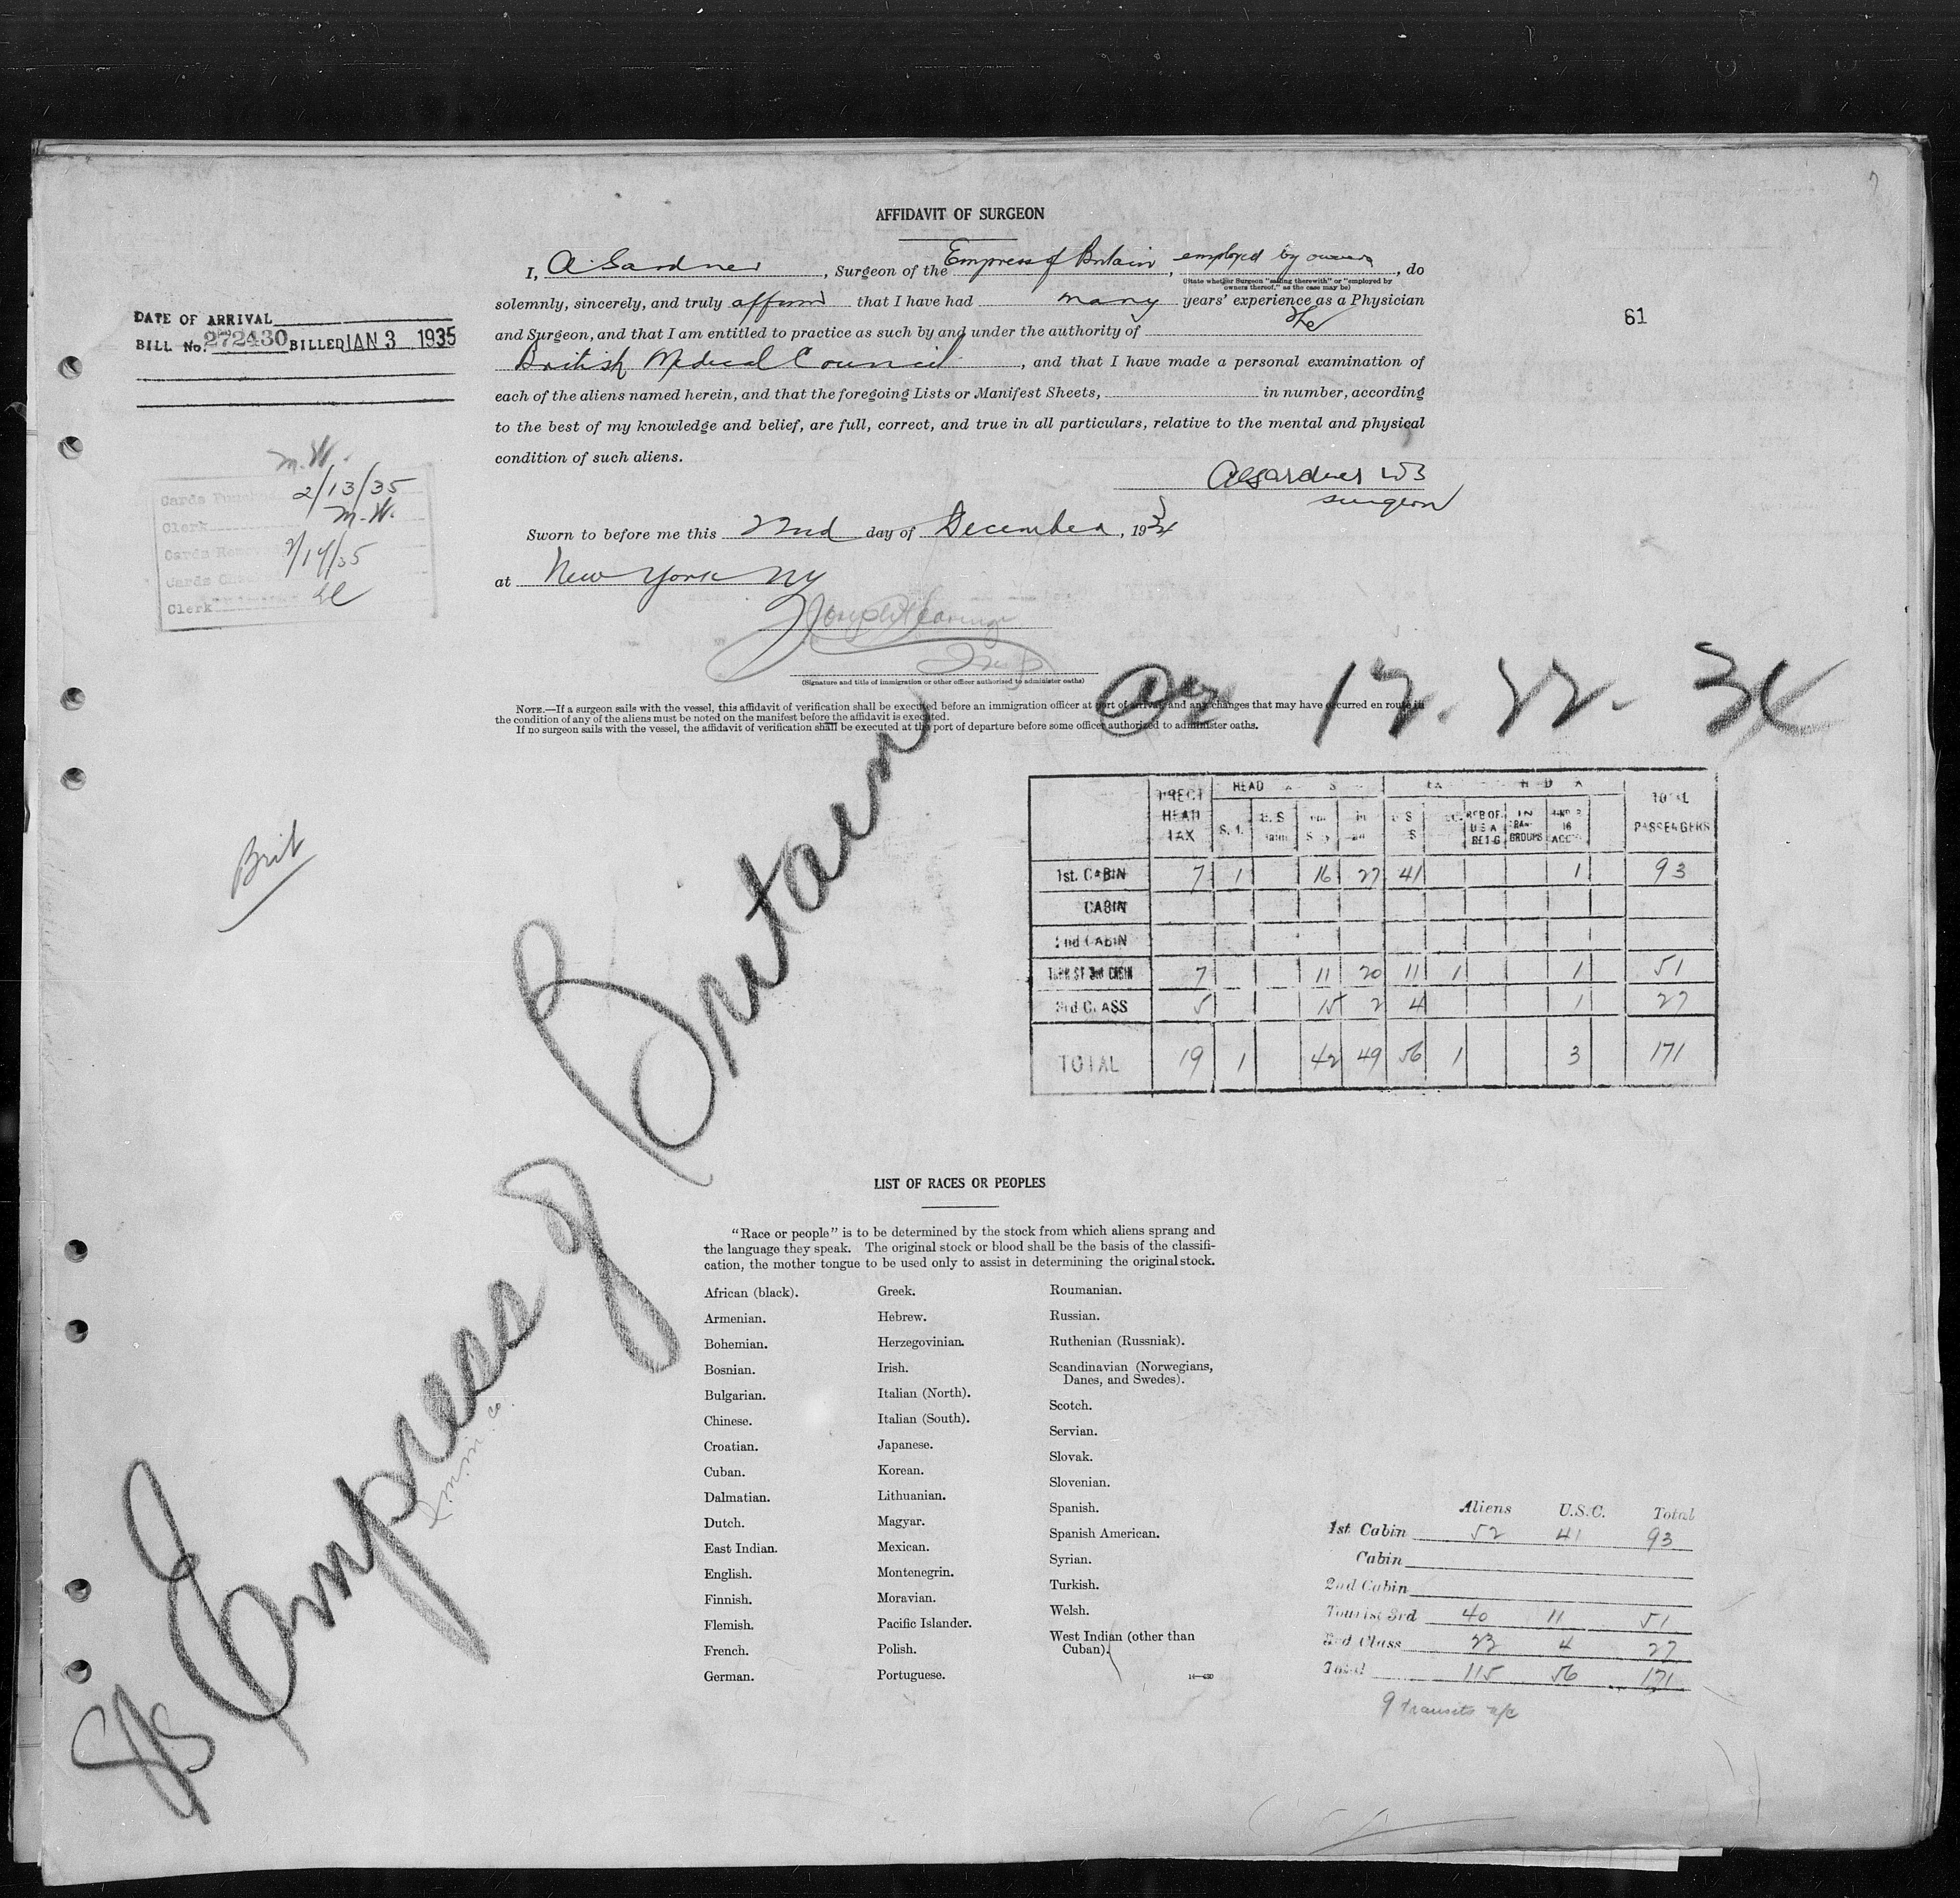 AFFIDAVIT OF SURGEON
I, A. Gardner, Surgeon of the Empress of Britain, employed by owners, do
(State whether Surgeon "sailing therewith" or "employed by
owners thereof," as the case may be)
solemnly, sincerely, and truly affirm that I have had many years' experience as a Physician
and Surgeon, and that I am entitled to practice as such by and under the authority of the
British Medical Council, and that I have made a personal examination of
each of the aliens named herein, and that the foregoing Lists or Manifest Sheets, in number, according
to the best of my knowledge and belief, are full, correct, and true in all particulars, relative to the mental and physical
condition of such aliens.
61
DATE OF ARRIVAL
BILL No. 272430 BILLED JAN 3 1935
AGardner
surgeon
M.W.
Cards Punched 2/13/35
Clerk M.W.
Cards Removed
Clerk
Sworn to before me this 22nd day of December, 1934
at New York NY
(Signature and title of immigration or other officer authorized to administer oaths)
NOTE.—If a surgeon sails with the vessel, this affidavit of verification shall be executed before an immigration officer at port of arrival, and any changes that may have occurred en route in
the condition of any of the aliens must be noted on the manifest before the affidavit is executed.
If no surgeon sails with the vessel, the affidavit of verification shall be executed at the port of departure before some officer authorized to administer oaths.
12-22-34
Brit
S/S Empress of Britain
DIRECT HEAD TAX
HEAD
TOTAL PASSENGERS
1st. CABIN 7 1 16 27 41 1 93
CABIN
2nd CABIN
TOURIST 3rd CABIN 7 11 20 11 1 1 51
3rd CLASS 5 15 2 4 1 27
TOTAL 19 1 42 49 56 1 3 171
LIST OF RACES OR PEOPLES
"Race or people" is to be determined by the stock from which aliens sprang and
the language they speak. The original stock or blood shall be the basis of the classifi-
cation, the mother tongue to be used only to assist in determining the original stock.
African (black).
Armenian.
Bohemian.
Bosnian.
Bulgarian.
Chinese.
Croatian.
Cuban.
Dalmatian.
Dutch.
East Indian.
English.
Finnish.
Flemish.
French.
German.
Greek.
Hebrew.
Herzegovinian.
Irish.
Italian (North).
Italian (South).
Japanese.
Korean.
Lithuanian.
Magyar.
Mexican.
Montenegrin.
Moravian.
Pacific Islander.
Polish.
Portuguese.
Roumanian.
Russian.
Ruthenian (Russniak).
Scandinavian (Norwegians,
Danes, and Swedes).
Scotch.
Servian.
Slovak.
Slovenian.
Spanish.
Spanish American.
Syrian.
Turkish.
Welsh.
West Indian (other than
Cuban).
Aliens U.S.C. Total
1st Cabin 52 41 93
Cabin
2nd Cabin
Tourist 3rd 40 11 51
3rd Class 23 4 27
Total 115 56 171
9 transits